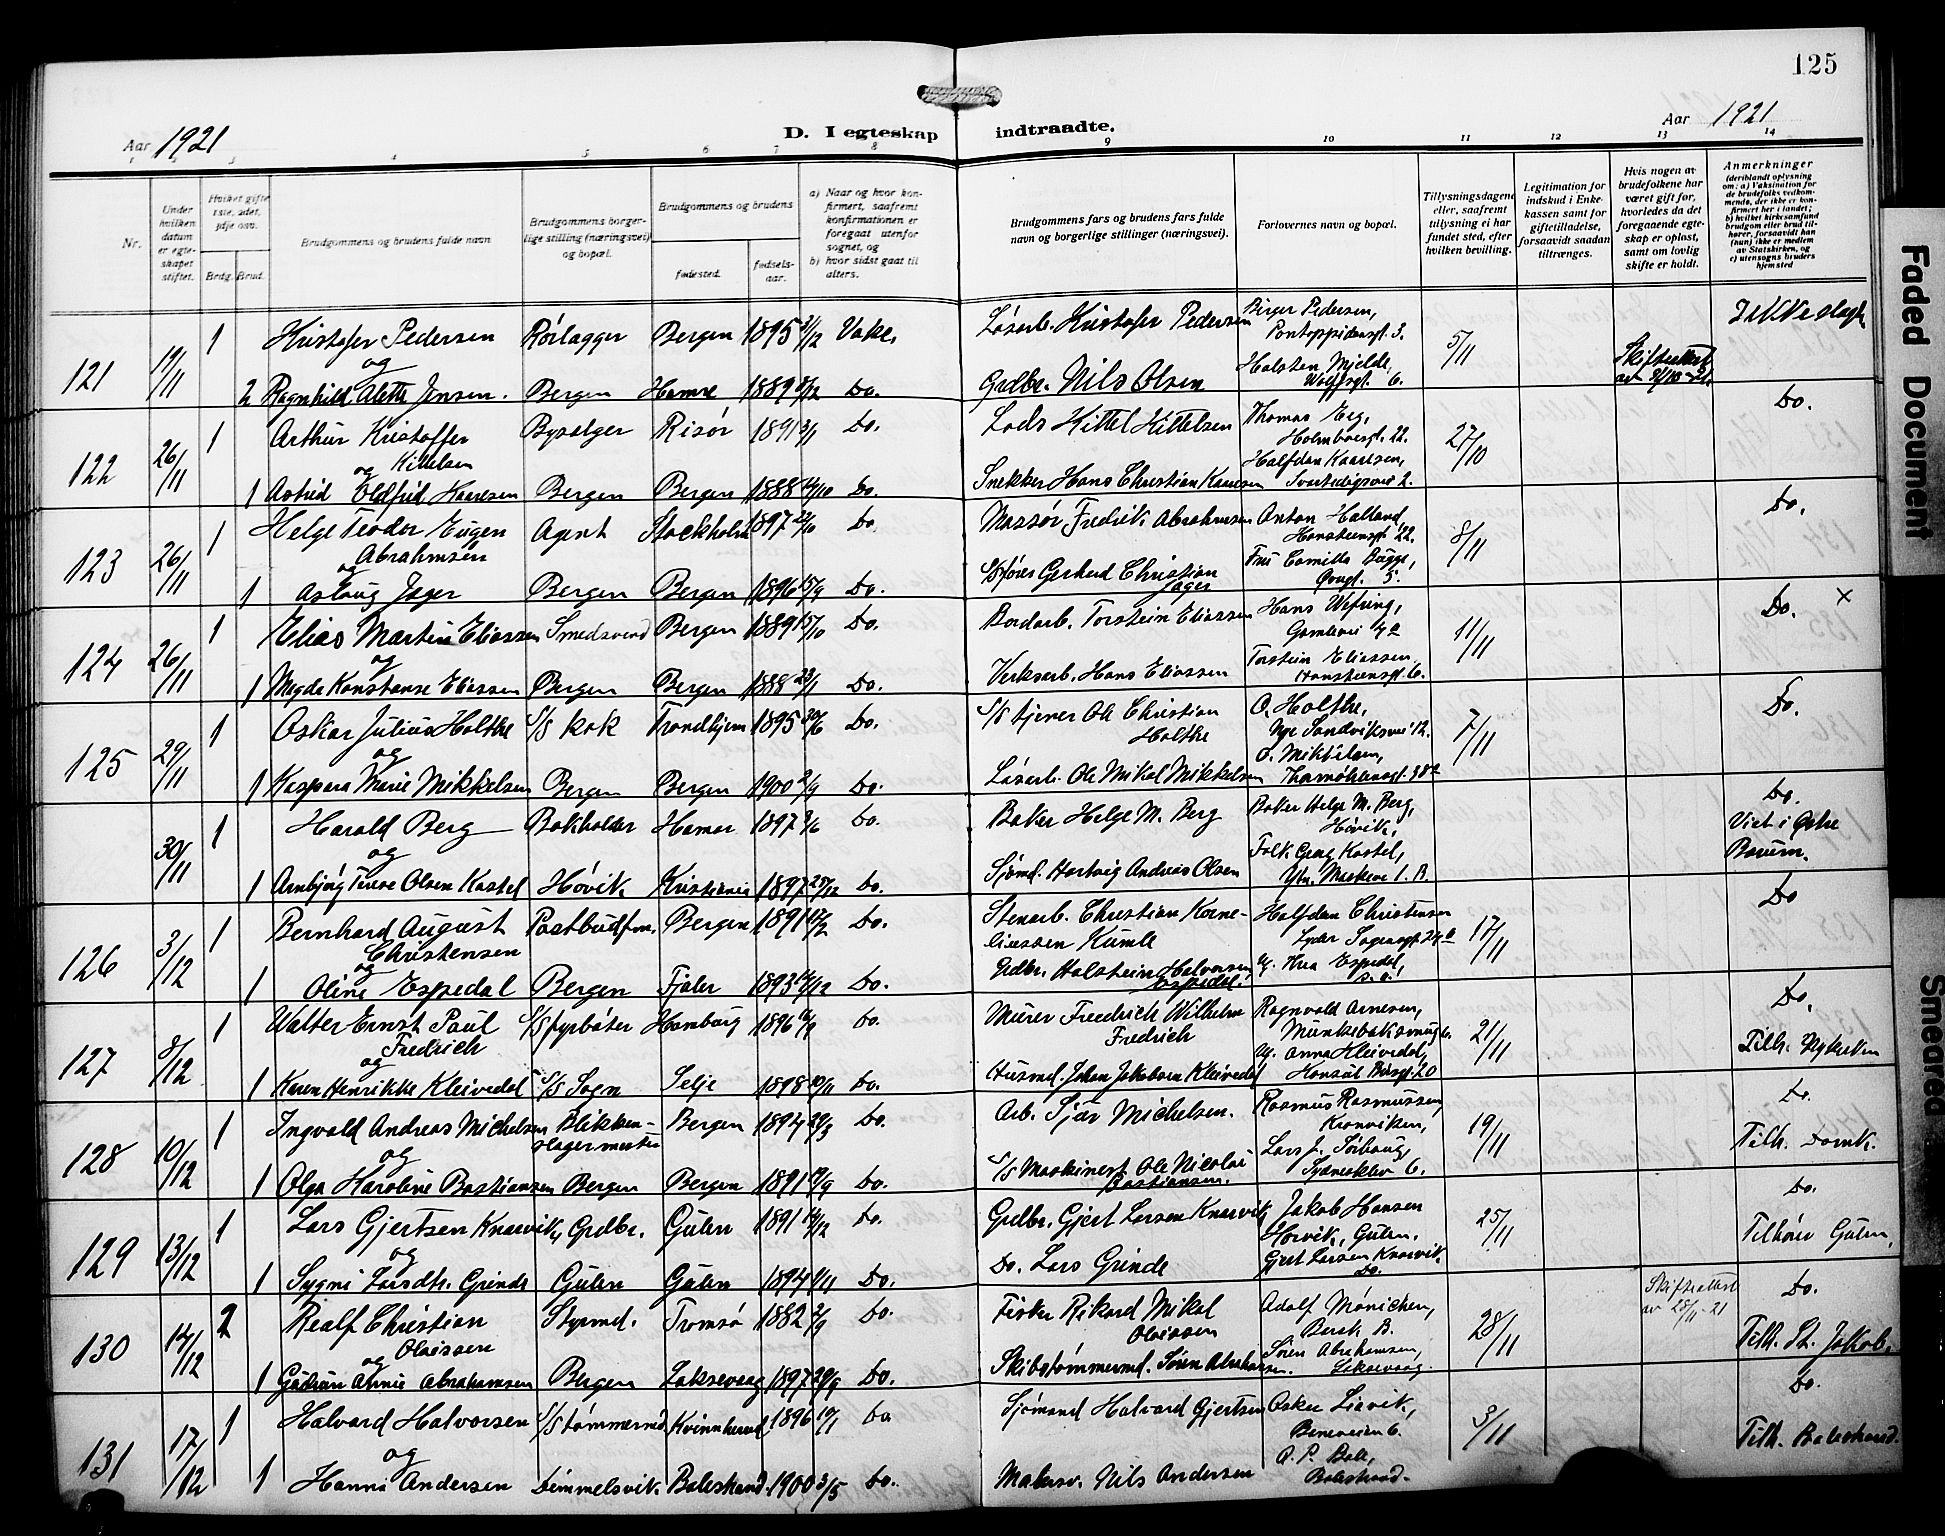 125
Aar 1921
D. I egteskap indtraadte.
Aar 1921
1 2 3 4 5 6 7 8 9 10 11 12 13 14
Nr.
Under hvilken datum er egteskapet stiftet.
Hvilket gifte 1ste, 2det, 3dje osv.
Brdg. Brud.
Brudgommens og brudens fulde navn
Brudgommens borgerlige stilling (næringsvei) og bopæl.
Brudgommens og brudens
fødested.
fødselsaar.
a) Naar og hvor konfirmert, saafremt konfirmationen er foregaat utenfor sognet, og
b) hvor sidst gaat til alters.
Brudgommens fars og brudens fars fulde navn og borgerlige stillinger (næringsvei).
Forlovernes navn og bopæl.
Tillysningsdagene eller, saafremt tillysning ei har fundet sted, efter hvilken bevilling.
Legitimation for indskud i Enkekassen samt for giftetilladelse, forsaavidt saadan tiltrænges.
Hvis nogen av brudefolkene har været gift før, hvorledes da det foregaaende egteskap er opløst, samt om lovlig skifte er holdt.
Anmerkninger
(deriblandt oplysning om: a) Vaksination for de brudefolks vedkommende, der ikke er konfirmert her i landet; b) hvilket kirkesamfund brudgom eller brud tilhører, forsaavidt han (hun) ikke er medlem av Statskirken, og c) utensogns bruders hjemsted
121 19/11 1 Kristofer Pedersen Rørlægger Bergen 1895 31/12 Løsarb. Kristofer Pedersen Birger Pedersen, Pontoppidansgt. 3. 5/11
og
2 Ragnhild Alette Jensen. Bergen Hamre 1889 Do. Grdbr. Nils Olsen Holsten Mjelde, Wolffsgt. 6. Skifteattest av
122 26/11 1 Arthur Kristoffer Kittelsen Byselger Risør 1891 3/1 Do. Lods Kittel Kittelsen Thomas Erg, Holmboesgt. 22. 27/10 Do.
og
1 Astrid Eldfrid Kaarsen Bergen Bergen 1888 Do. Snekker Hans Christian Halfdan Kaarsen, 2.
123 26/11 1 Helge Teodor Eugen Abrahamsen Agent Stockholm 1897 22/10 Do. Massør Fredrik Abrahamsen Anton Halland, Konsteensgt. 22. 8/11 Do.
og
1 Aslaug Jager Bergen Bergen 1896 15/9 Do. S/Sfører Gerhard Christian Jager Fru Camilla Bugge, 5.
124 26/11 1 Elias Martin Eliassen Smedsvend Bergen 1889 15/10 Do. Bordarb. Torstein Eliassen Hans Wefring, 11/11 Do. x
og
1 Magda Konstanse Eliassen Bergen Bergen 1888 23/1 Do. Verksarb. Hans Eliassen Torstein Eliassen, Konsteensgt. 6.
125 29/11 1 Oskar Julius Holthe S/S kok Trondhjem 1895 20/6 Do. S/S tjener Ole Christian Holthe O. Holthe, Nye Sandviksvei 12. 7/11 Do.
og
1 Kaspara Marie Mikkelsen Bergen Bergen 1900 2/9 Do. Løsarb. Ole Mikal Mikkelsen O. Mikkelsen,
30/11 1 Harald Berg Bokholder Hamar 1897 Do. Baker Helge M. Berg Baker Helge M. Berg, Høvik, Do. Viet i Østre Bærum.
og
1 Olsen Kastel Høvik Kristiania 1897 25/12 Do. Sjømd. Hartvig Andreas Olsen Georg Kastel, Ytr. Markevei 1. B.
126 3/12 1 Bernhard August Christensen Postbudfm. Bergen 1891 Do. Stenarb. Christian Korneliussen Kumle Halfdan Christensen Lyder Sagensgt. 17/11 Do
og
1 Oline Espedal Bergen Fjaler 1893 Do. Grdbr. Holstein Halvorsen Espedal. Espedal, Do.
127 8/12 1 Walter Ernst Paul Fredrich S/S fyrbøter Hamburg 1896 Do. Murer Fredrich Wilhelm Fredrich Ragnvald Arnesen, Munkebaksmug 6. 21/11 Do. Tilh. Nykirken
og
1 Karen Henrikke Kleivedal S/S Sogn Selje 1898 10/11 Do. Husmd. Johan Jakobsen Kleivedal Anna Kleivedal, 20
128 10/12 1 Ingvald Andreas Michelsen Blikkenslagermester Bergen 1894 Do. Arb. Sjur Michelsen. Rasmus Rasmussen, Kronviken, 19/11 Do. Tilh. Domk.
og
1 Olga Karoline Bastiansen Bergen Bergen 1891 Do. S/S Maskinest Ole Nicolai Bastiansen. Lars J. Sørhaug, Sydneskleiv 6.
129 13/12 1 Lars Gjertsen Knarvik, Grdbr. Gulen 1891 14/12 Do. Grdbr. Gjert Larsen Knarvik Jakob Hansen Gulen. 25/11 Do. Tilhører Gulen,
og
1 Sygni Larsdtr. Grinde Gulen Gulen 1894 Do. Do. Lars Grinde Gjert Larsen Knarvik. Do.
130 14/12 2 Realf Christian Olaissen Styrmd. Tromsø 1882 2/9 Do. Fisker Rikard Mikal Olaissen Adolf Mønichen, B. 28/11 Skifteattest av 28/11-21 Do. Tilh. St. Jakob.
og
1 Gudrun Annie Abrahamsen Bergen Laksevaag 1897 29/9 Do. Skibstømmermd. Søren Abrahamsen. Søren Abrahamsen, Laksevaag.
131 17/12 1 Halvard Halvorsen S/S tømmermd. Kvinnherred 1896 19/1 Do. Sjømand Halvard Gjertsen Oskar 6. 3/11 Do. Tilh. Balestrand.
og
1 Hanna Andersen Dømmelsvik. Balestrand. 1900 3/5 Do. Malersv. Nils Andersen A. P. Bale, Balestrand.
Faded Document
Smeared